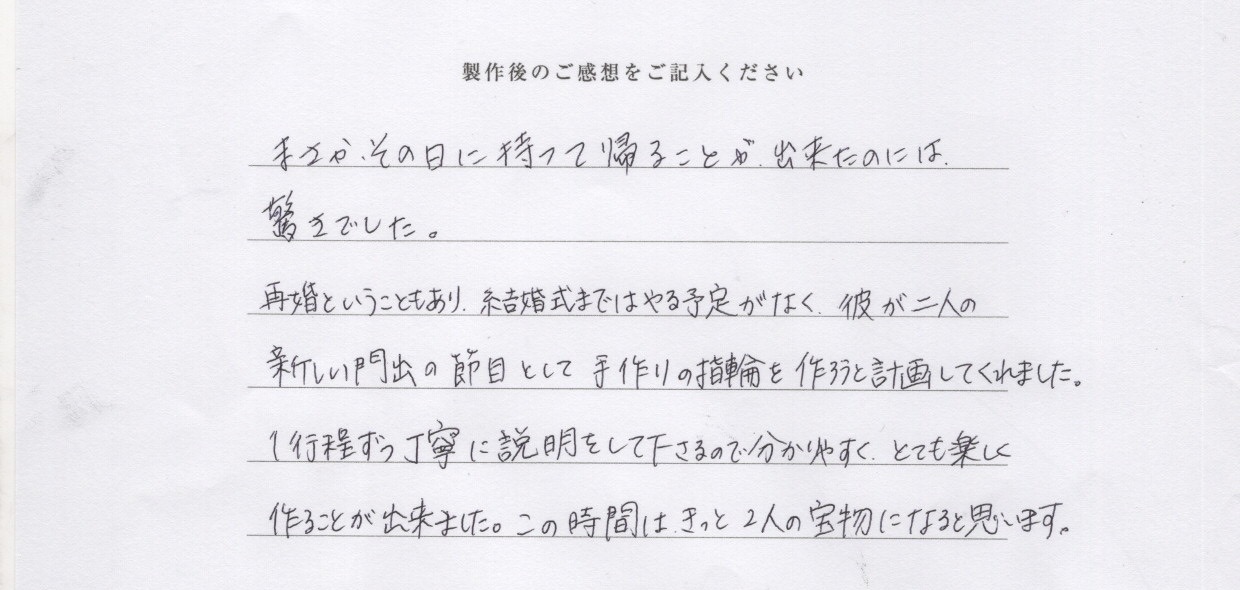 製作後のご感想をご記入ください
まさか、その日に持って帰ることが、出来たのには、
驚きでした。
再婚ということもあり、結婚式まではやる予定がなく、彼が二人の
新しい門出の節目として手作りの指輪を作ろうと計画してくれました。
1行程ずつ丁寧に説明をして下さるので分かりやすく、とても楽しく
作ることが出来ました。この時間は、きっと2人の宝物になると思います。